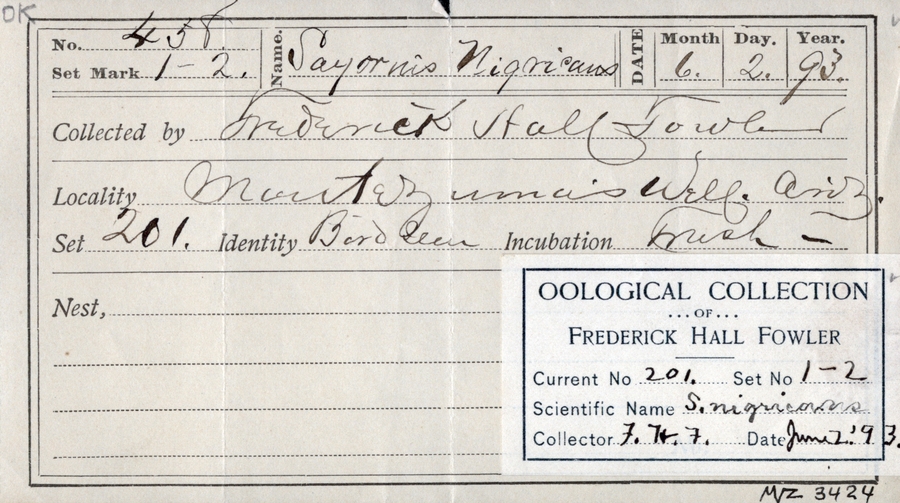 OK
No. 458 Name. Sayornis Nigricans DATE Month 6. Day. 2. Year. 93.
Set Mark 1-2.
Collected by Frederick Hall Fowler
Locality Montezuma's Well. Ariz.
Set 201. Identity Bird Seen Incubation Fresh -
Nest,
OOLOGICAL COLLECTION
...OF...
FREDERICK HALL FOWLER
Current No 201. Set No 1-2
Scientific Name S. nigricans
Collector F. H. F. Date June 2. '93.
MVZ 3424